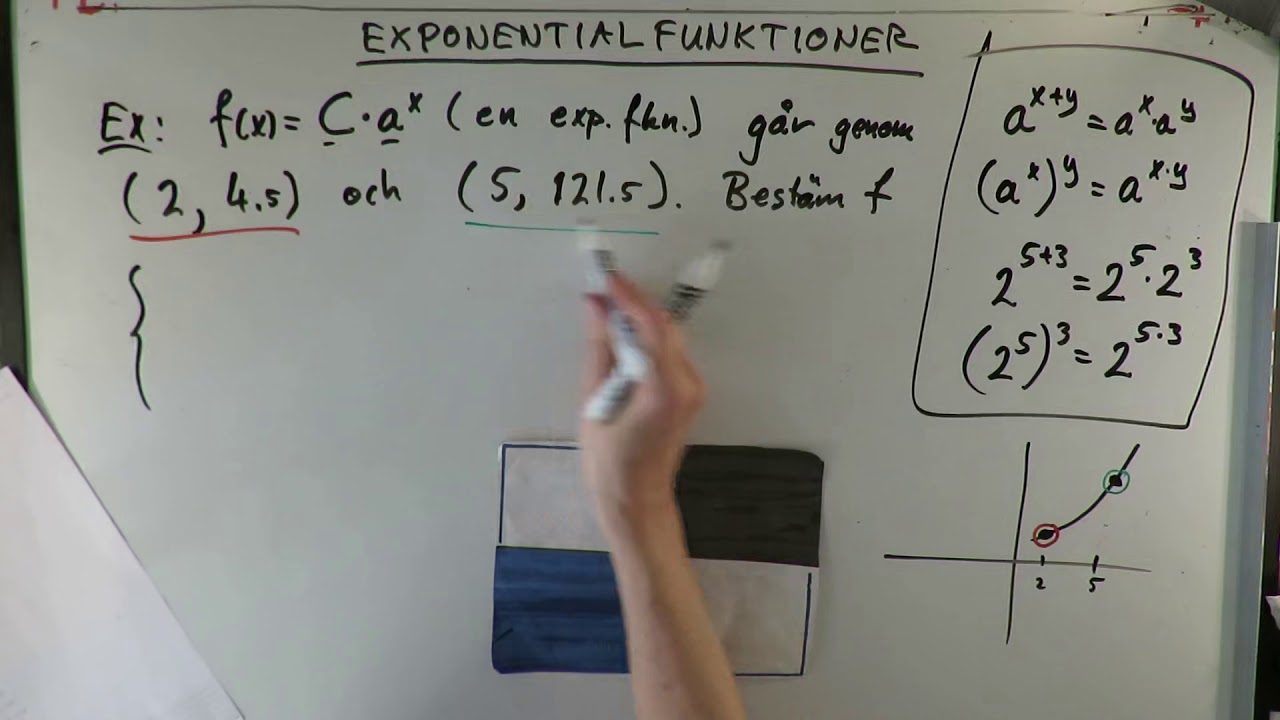 EXPONENTIALFUNKTIONER
Ex: f(x) = C·a^x (en exp. fkn.) går genom
(2, 4.5) och (5, 121.5). Bestäm f
{
a^(x+y) = a^x·a^y
(a^x)^y = a^(x·y)
2^(5+3) = 2^5·2^3
(2^5)^3 = 2^(5·3)
2 5